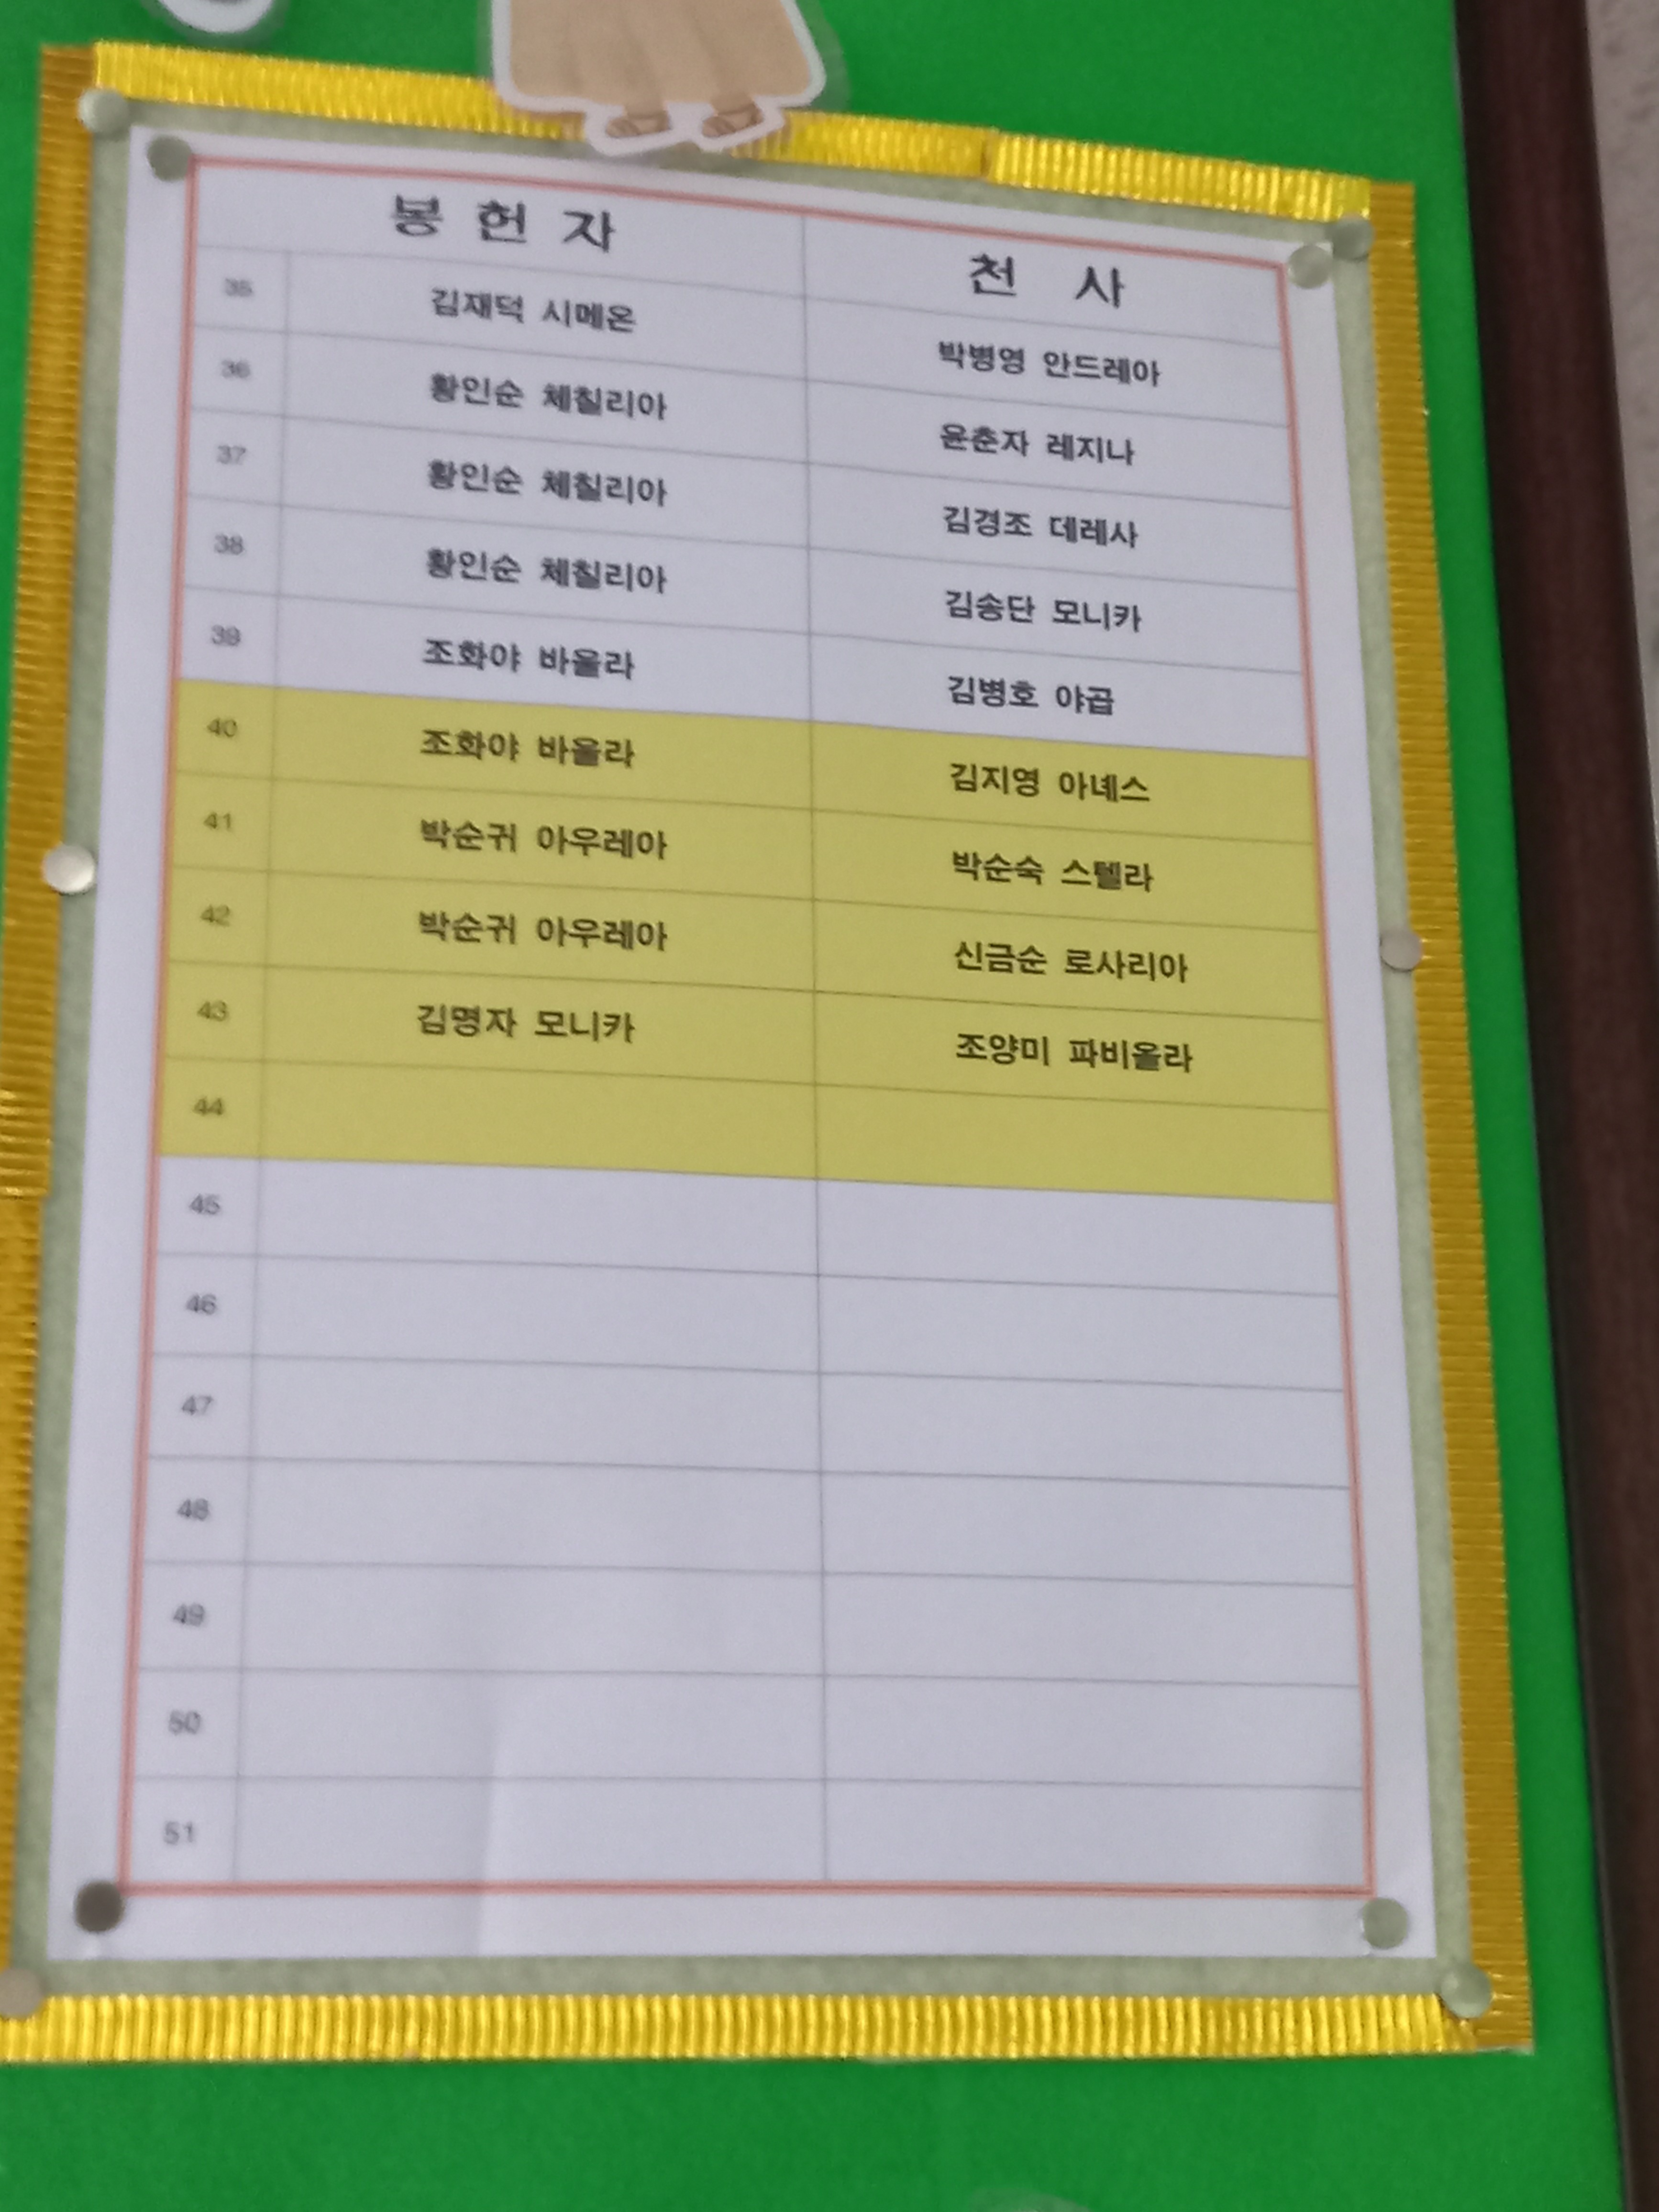 봉 헌 자 천 사
35 김재덕 시메온 박병영 안드레아
36 황인순 체칠리아 윤춘자 레지나
37 황인순 체칠리아 김경조 데레사
38 황인순 체칠리아 김송단 모니카
39 조화야 바울라 김병호 야곱
40 조화야 바울라 김지영 아녜스
41 박순귀 아우레아 박순숙 스텔라
42 박순귀 아우레아 신금순 로사리아
43 김명자 모니카 조양미 파비올라
44
45
46
47
48
49
50
51